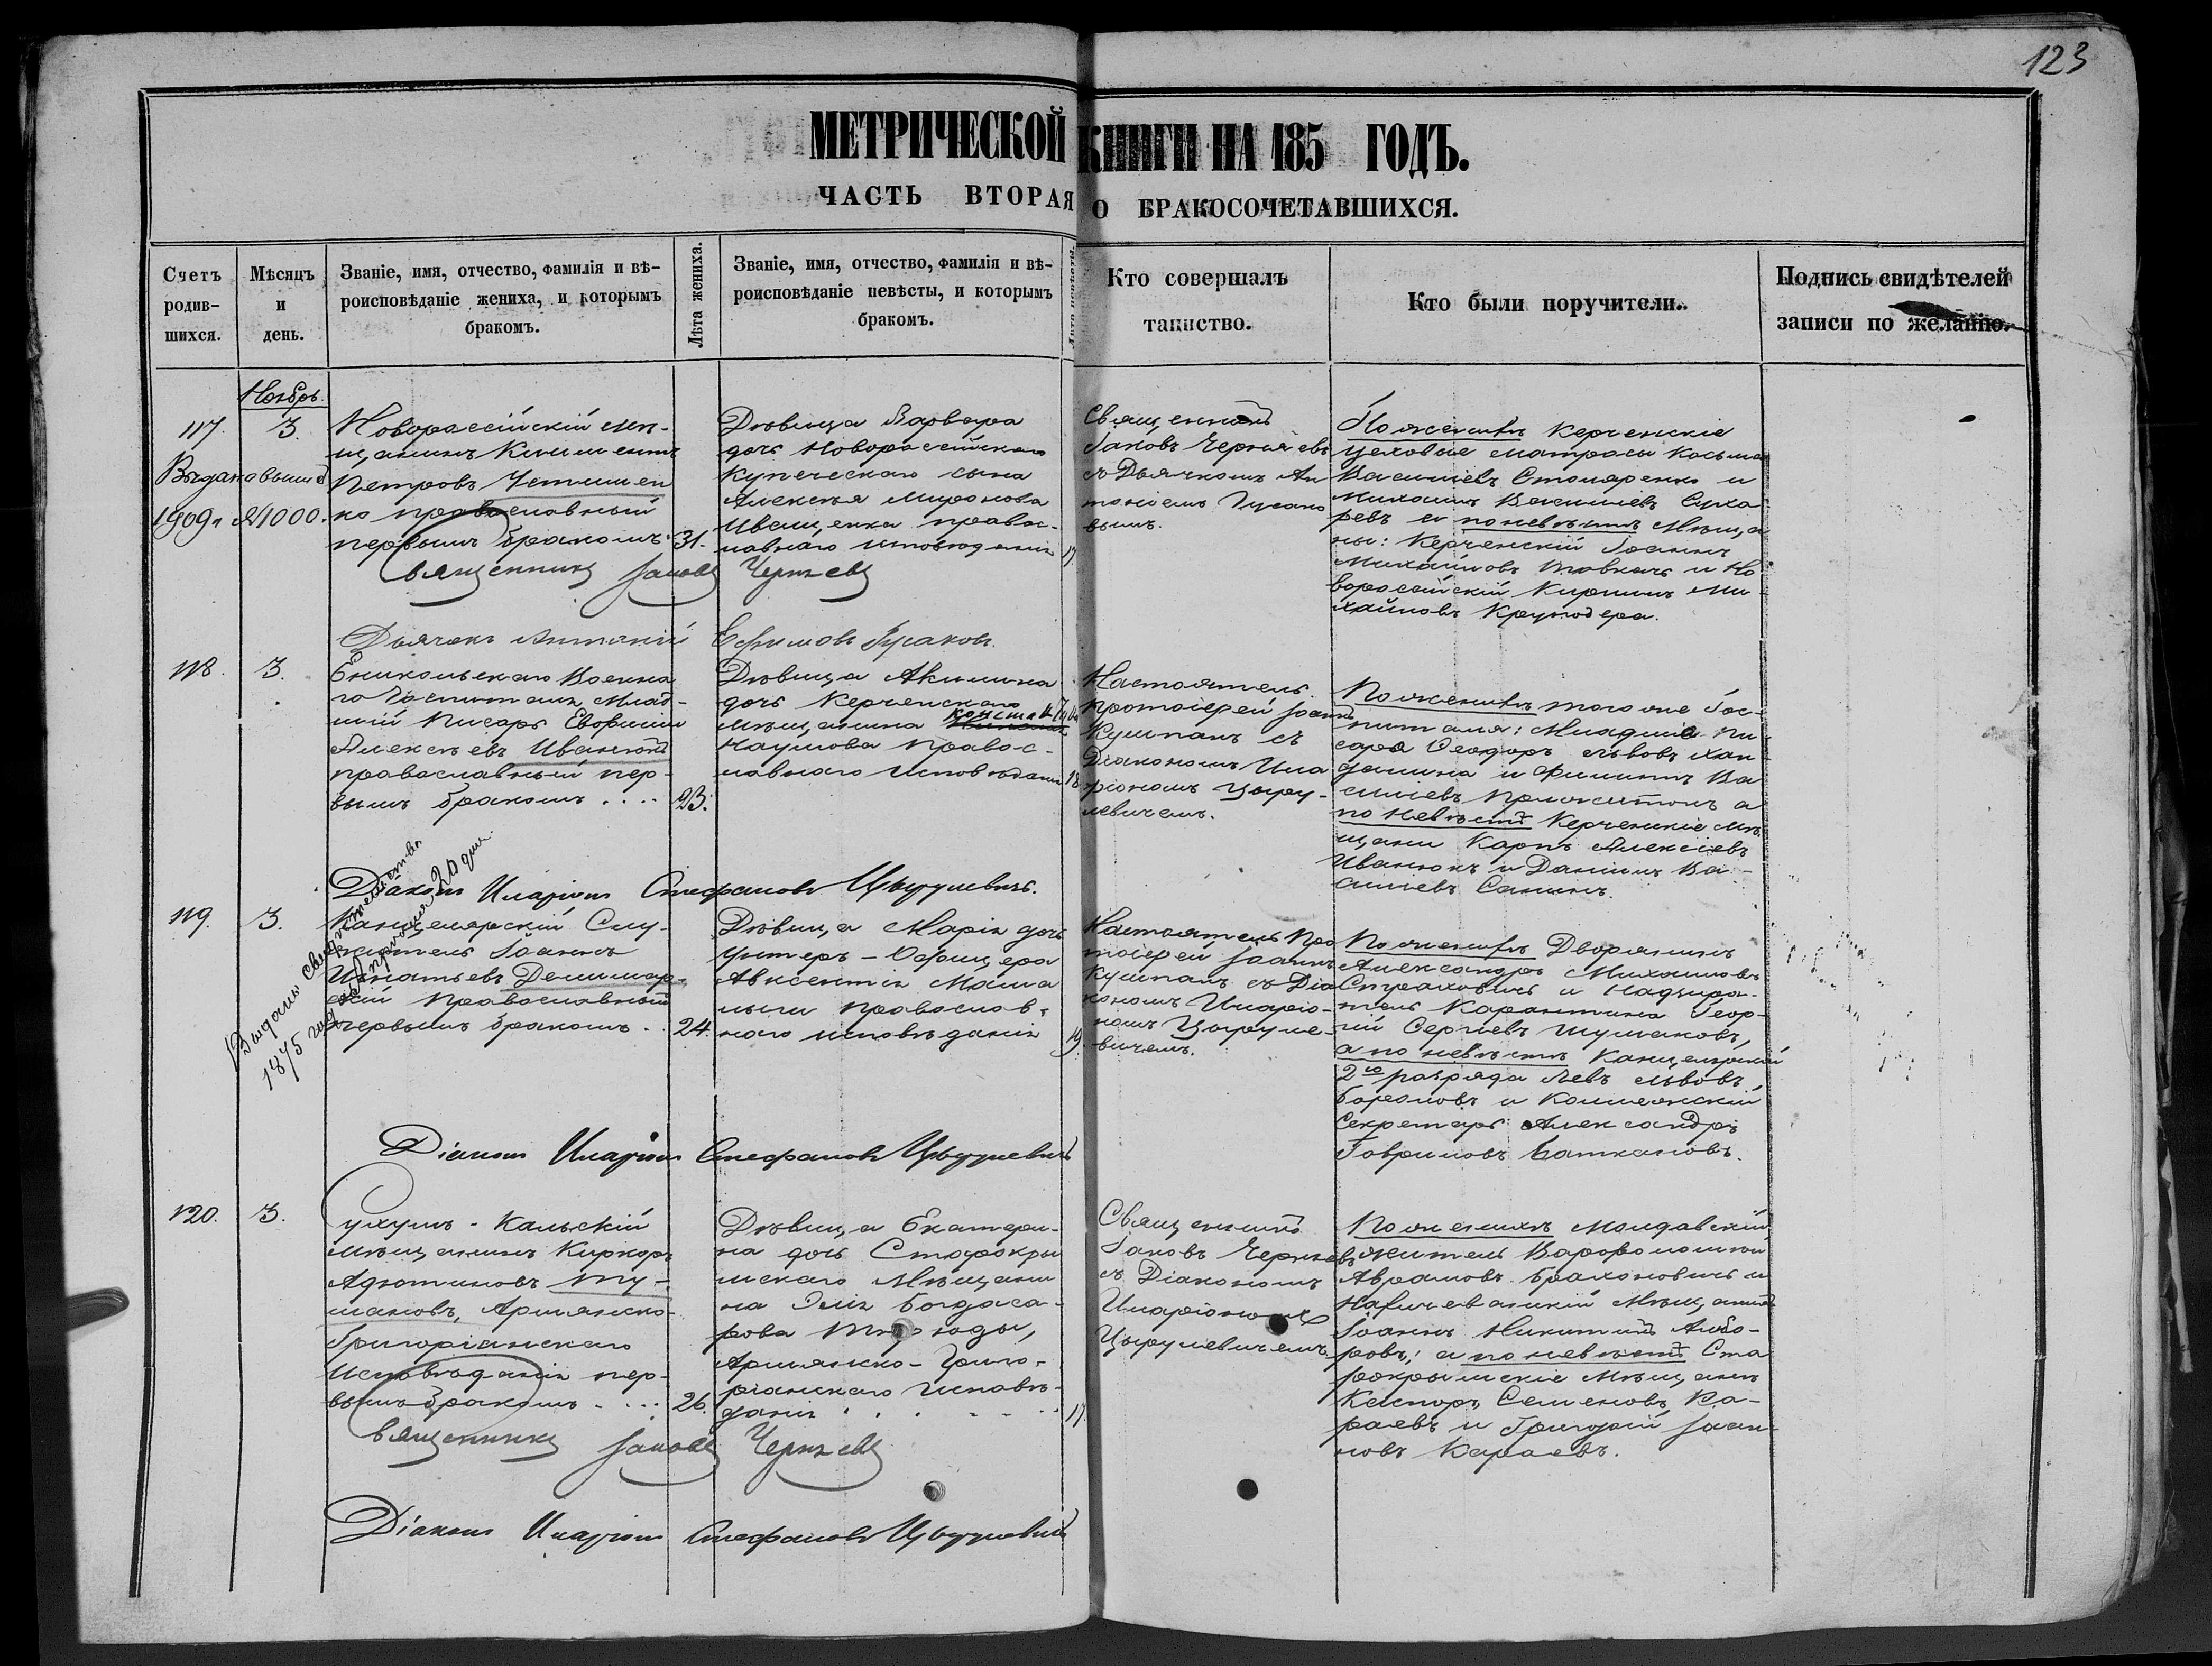 123
МЕТРИЧЕСКОЙ КНИГИ НА 185 ГОДЪ.
ЧАСТЬ ВТОРАЯ О БРАКОСОЧЕТАВШИХСЯ.
Счетъ родив-шихся.
Мѣсяцъ и день.
Званіе, имя, отчество, фамилія и вѣ-
роисповѣданіе жениха, и которымъ
бракомъ.
Лѣта жениха.
Званіе, имя, отчество, фамилія и вѣ-
роисповѣданіе невѣсты, и которымъ
бракомъ.
Лѣта невѣсты.
Кто совершалъ
таинство.
Кто были поручители.
Подпись свидѣтелей
записи по желанію.
Ноябрь.
117. 3.
1909 г №1000.
Новороссійскій мѣ-
щанинъ Климентъ
Петровъ
православный
первымъ бракомъ. 31.
Дѣвица Варвара
дочь Новороссійскаго
Купеческаго сына
Алексѣя Миронова
Иващенка правос-
лавнаго исповѣданія 17
Священникъ
Іаковъ Черняевъ
съ Дьячкомъ Ан
тоніемъ Гусако
вымъ.
По женихѣ Керченскіе
цеховые матросы Косьма
Васильевъ Столяренко и
Михаилъ Васильевъ Суха
ревъ а по невѣстѣ Мѣща
не: Керченскій Іоаннъ
Михайловъ Товкачъ и Но
вороссійскій Кириллъ Ми
хайловъ Круподера.
Священникъ Іаковъ Черняевъ
Дьячекъ Антоній Ефимовъ Гусаковъ.
118. 3.
Еникольскаго Военна
го Госпиталя Млад-
шій Писарь Евфимій
Алексѣевъ Иванютъ
православный пер-
вымъ бракомъ . . . . 23.
Дѣвица Акилина
дочь Керченскаго
мѣщанина
Наумова правос-
лавнаго исповѣданія 18
Настоятель
Протоіерей Іоаннъ
Кушпанъ съ
Діакономъ Ила
ріономъ Цыру-
левичемъ.
По женихѣ того же Гос-
питаля: Младшіе Пи
саря Ѳеодоръ Львовъ Хан
дашина и Филиппъ Ва
сильевъ а
по невѣстѣ Керченскіе мѣ
щане Карпъ Алексіевъ
Иванюкъ и Даніилъ Ва-
сильевъ Санинъ.
Діаконъ Иларіонъ Стефановъ Цырулевичъ.
Выдано свидѣтельство
1875 года Апрѣля 20 дня
119. 3.
Канцелярскій Слу-
житель Іоаннъ
Игнатьевъ
православный
первымъ бракомъ . . 24.
Дѣвица Марія дочь
Унтеръ-Офицера
Авксентія
православ-
наго исповѣданія 19.
Настоятель Про
тоіерей Іоаннъ
Кушпанъ съ Діа
кономъ Иларіо-
номъ Цыруле-
вичемъ.
По женихѣ Дворянинъ
Александръ Михайловъ
Страховичъ и Надзира-
тель Карантина Геор-
гій Сергѣевъ Шумаковъ,
а по невѣстѣ Канцелярскій
2го разряда Левъ Львовъ
и Коллежскій
Секретарь Александръ
Гавриловъ Баткановъ.
Діаконъ Иларіонъ Стефановъ Цырулевичъ
120. 3.
Сухумъ-Кальскій
мѣщанинъ Киркоръ
Ту-
мановъ, Армянско-
Григоріанскаго
исповѣданія пер-
вымъ бракомъ . . . . 26.
Дѣвица Екатери-
на дочь Старокры
мскаго Мѣщани
на Эліи Богдаса-
рова
Армянско-Григо-
ріанскаго исповѣ-
данія . . . . . . 17.
Священникъ
Іаковъ Черняевъ
съ Діакономъ
Иларіономъ
Цырулевичемъ
По женихѣ Молдавскій
житель Варѳоломей
Аврамовъ Брахоновичъ и
Нахичеванскій Мѣщанинъ
Іоаннъ Никитинъ
а по невѣстѣ Ста
рокрымскіе Мѣщане
Каспоръ Семеновъ Ка-
раевъ и Григорій Іоан-
новъ Караевъ.
Священникъ Іаковъ Черняевъ
Діаконъ Иларіонъ Стефановъ Цырулевичъ